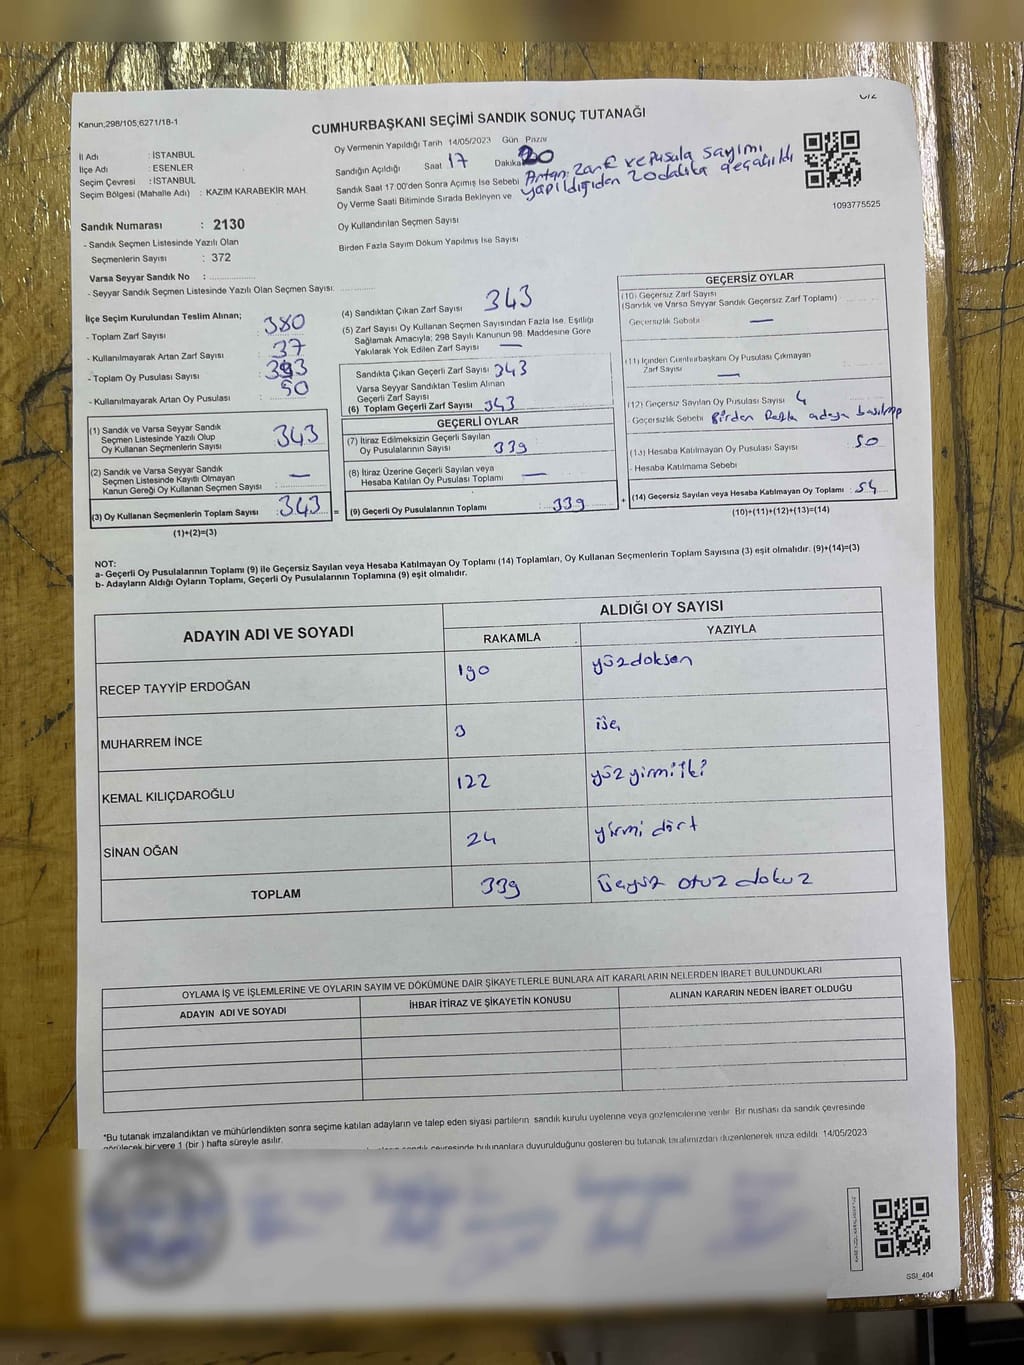 Kanun;298/105,6271/18-1
CUMHURBAŞKANI SEÇİMİ SANDIK SONUÇ TUTANAĞI
İl Adı : İSTANBUL
İlçe Adı : ESENLER
Seçim Çevresi : İSTANBUL
Seçim Bölgesi (Mahalle Adı) : KAZIM KARABEKİR MAH.
Oy Vermenin Yapıldığı Tarih 14/05/2023 Gün Pazar
Sandığın Açıldığı Saat 17 Dakika 20
Sandık Saat 17:00'den Sonra Açımış İse Sebebi Artan zarf ve pusula sayımı
yapıldığıden 20 dakika geç açıldı
Oy Verme Saati Bitiminde Sırada Bekleyen ve
Oy Kullandırılan Seçmen Sayısı
Birden Fazla Sayım Döküm Yapılmış İse Sayısı
1093775525
Sandık Numarası : 2130
- Sandık Seçmen Listesinde Yazılı Olan
Seçmenlerin Sayısı : 372
Varsa Seyyar Sandık No :
- Seyyar Sandık Seçmen Listesinde Yazılı Olan Seçmen Sayısı:
İlçe Seçim Kurulundan Teslim Alınan;
- Toplam Zarf Sayısı : 380
- Kullanılmayarak Artan Zarf Sayısı : 37
- Toplam Oy Pusulası Sayısı : 393
- Kullanılmayarak Artan Oy Pusulası : 50
(1) Sandık ve Varsa Seyyar Sandık
Seçmen Listesinde Yazılı Olup
Oy Kullanan Seçmenlerin Sayısı : 343
(2) Sandık ve Varsa Seyyar Sandık
Seçmen Listesinde Kayıtlı Olmayan
Kanun Gereği Oy Kullanan Seçmen Sayısı : —
(3) Oy Kullanan Seçmenlerin Toplam Sayısı : 343 =
(1)+(2)=(3)
(4) Sandıktan Çıkan Zarf Sayısı 343
(5) Zarf Sayısı Oy Kullanan Seçmen Sayısından Fazla İse, Eşitliği
Sağlamak Amacıyla; 298 Sayılı Kanunun 98. Maddesine Göre
Yakılarak Yok Edilen Zarf Sayısı : —
Sandıkta Çıkan Geçerli Zarf Sayısı : 343
Varsa Seyyar Sandıktan Teslim Alınan
Geçerli Zarf Sayısı :
(6) Toplam Geçerli Zarf Sayısı : 343
GEÇERLİ OYLAR
(7) İtiraz Edilmeksizin Geçerli Sayılan
Oy Pusulalarının Sayısı : 339
(8) İtiraz Üzerine Geçerli Sayılan veya
Hesaba Katılan Oy Pusulası Toplamı : —
(9) Geçerli Oy Pusulalarının Toplamı : 339 +
GEÇERSİZ OYLAR
(10) Geçersiz Zarf Sayısı
(Sandık ve Varsa Seyyar Sandık Geçersiz Zarf Toplamı)
Geçersizlik Sebebi : —
(11) İçinden Cumhurbaşkanı Oy Pusulası Çıkmayan
Zarf Sayısı : —
(12) Geçersiz Sayılan Oy Pusulası Sayısı : 4
- Geçersizlik Sebebi : Birden fazla adaya basılmış
(13) Hesaba Katılmayan Oy Pusulası Sayısı : 50
- Hesaba Katılmama Sebebi
(14) Geçersiz Sayılan veya Hesaba Katılmayan Oy Toplamı : 54
(10)+(11)+(12)+(13)=(14)
NOT:
a- Geçerli Oy Pusulalarının Toplamı (9) ile Geçersiz Sayılan veya Hesaba Katılmayan Oy Toplamı (14) Toplamları, Oy Kullanan Seçmenlerin Toplam Sayısına (3) eşit olmalıdır. (9)+(14)=(3)
b- Adayların Aldığı Oyların Toplamı, Geçerli Oy Pusulalarının Toplamına (9) eşit olmalıdır.
ADAYIN ADI VE SOYADI
ALDIĞI OY SAYISI
RAKAMLA YAZIYLA
RECEP TAYYİP ERDOĞAN 190 yüzdoksan
MUHARREM İNCE 3 üç
KEMAL KILIÇDAROĞLU 122 yüz yirmi iki
SİNAN OĞAN 24 yirmi dört
TOPLAM 339 üçyüz otuz dokuz
OYLAMA İŞ VE İŞLEMLERİNE VE OYLARIN SAYIM VE DÖKÜMÜNE DAİR ŞİKAYETLERLE BUNLARA AİT KARARLARIN NELERDEN İBARET BULUNDUKLARI
ADAYIN ADI VE SOYADI İHBAR İTİRAZ VE ŞİKAYETİN KONUSU ALINAN KARARIN NEDEN İBARET OLDUĞU
*Bu tutanak imzalandıktan ve mühürlendikten sonra seçime katılan adayların ve talep eden siyasi partilerin sandık kurulu üyelerine veya gözlemcilerine verilir. Bir nushası da sandık çevresinde
görülecek bir yere 1 (bir) hafta süreyle asılır.
sandık çevresinde bulunanlara duyurulduğunu gösteren bu tutanak tarafımızdan düzenlenerek imza edildi. 14/05/2023
SSI_404